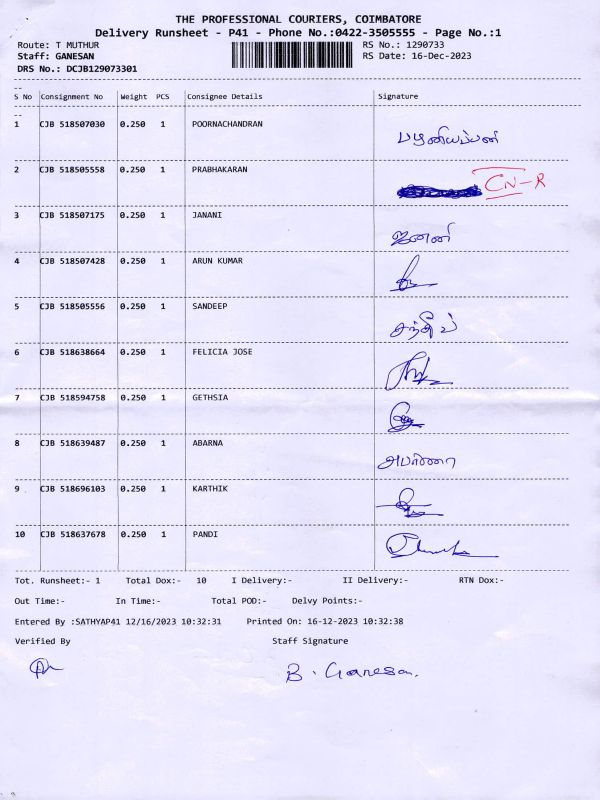 THE PROFESSIONAL COURIERS, COIMBATORE
Delivery Runsheet - P41 - Phone No.:0422-3505555 - Page No.:1
Route: T MUTHUR RS No.: 1290733
Staff: GANESAN RS Date: 16-Dec-2023
DRS No.: DCJB129073301
--
S No Consignment No Weight PCS Consignee Details Signature
--
1 CJB 518507030 0.250 1 POORNACHANDRAN பழனியப்பன்
2 CJB 518505558 0.250 1 PRABHAKARAN CN-R
3 CJB 518507175 0.250 1 JANANI ஜனனி
4 CJB 518507428 0.250 1 ARUN KUMAR
5 CJB 518505556 0.250 1 SANDEEP சந்தீப்
6 CJB 518638664 0.250 1 FELICIA JOSE
7 CJB 518594758 0.250 1 GETHSIA
8 CJB 518639487 0.250 1 ABARNA அபர்ணா
9 CJB 518696103 0.250 1 KARTHIK
10 CJB 518637678 0.250 1 PANDI
Tot. Runsheet:- 1 Total Dox:- 10 I Delivery:- II Delivery:- RTN Dox:-
Out Time:- In Time:- Total POD:- Delvy Points:-
Entered By :SATHYAP41 12/16/2023 10:32:31 Printed On: 16-12-2023 10:32:38
Verified By Staff Signature
B. Ganesan.